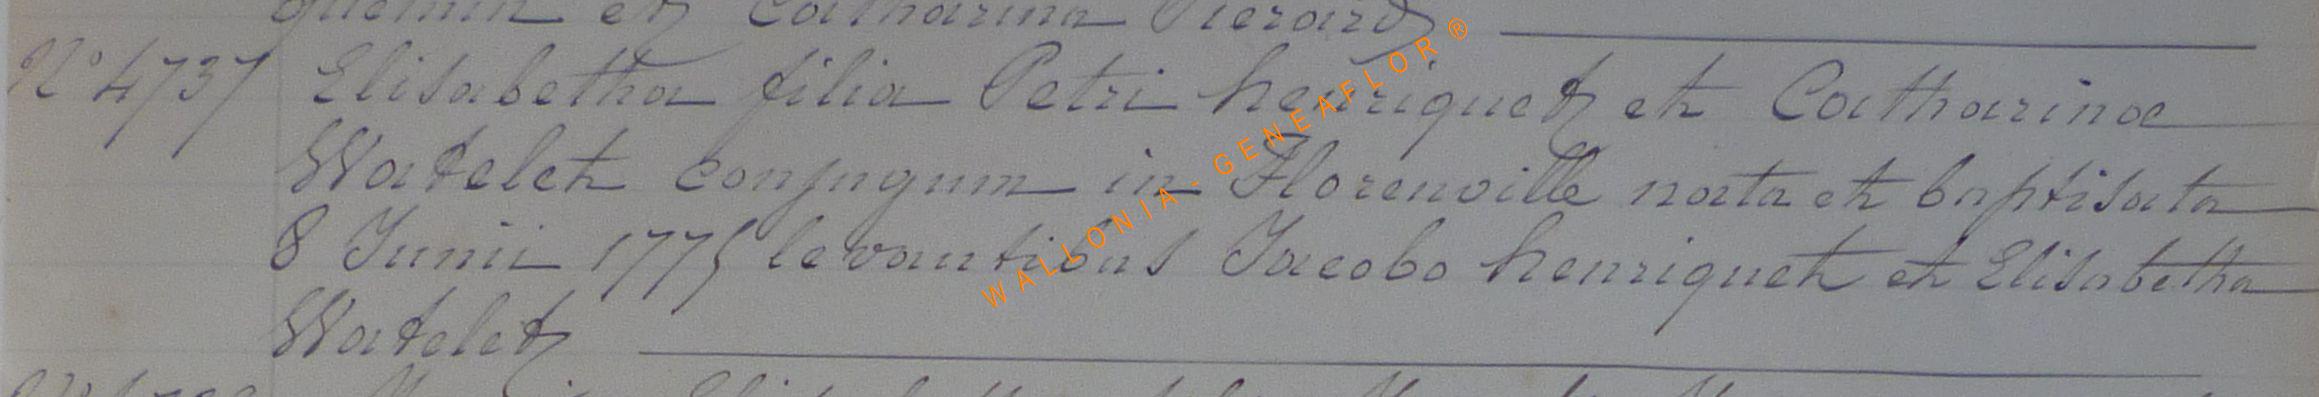 quemin et Catharina Pierard
N° 4737 Elisabetha filia Petri henriquet et Catharinae
Watelet conjugum in Florenville nata et baptisata
8 Junii 1775 levantibus Jacobo henriquet et Elisabetha
Watelet
WALLONIA - GENEAFLOR ®